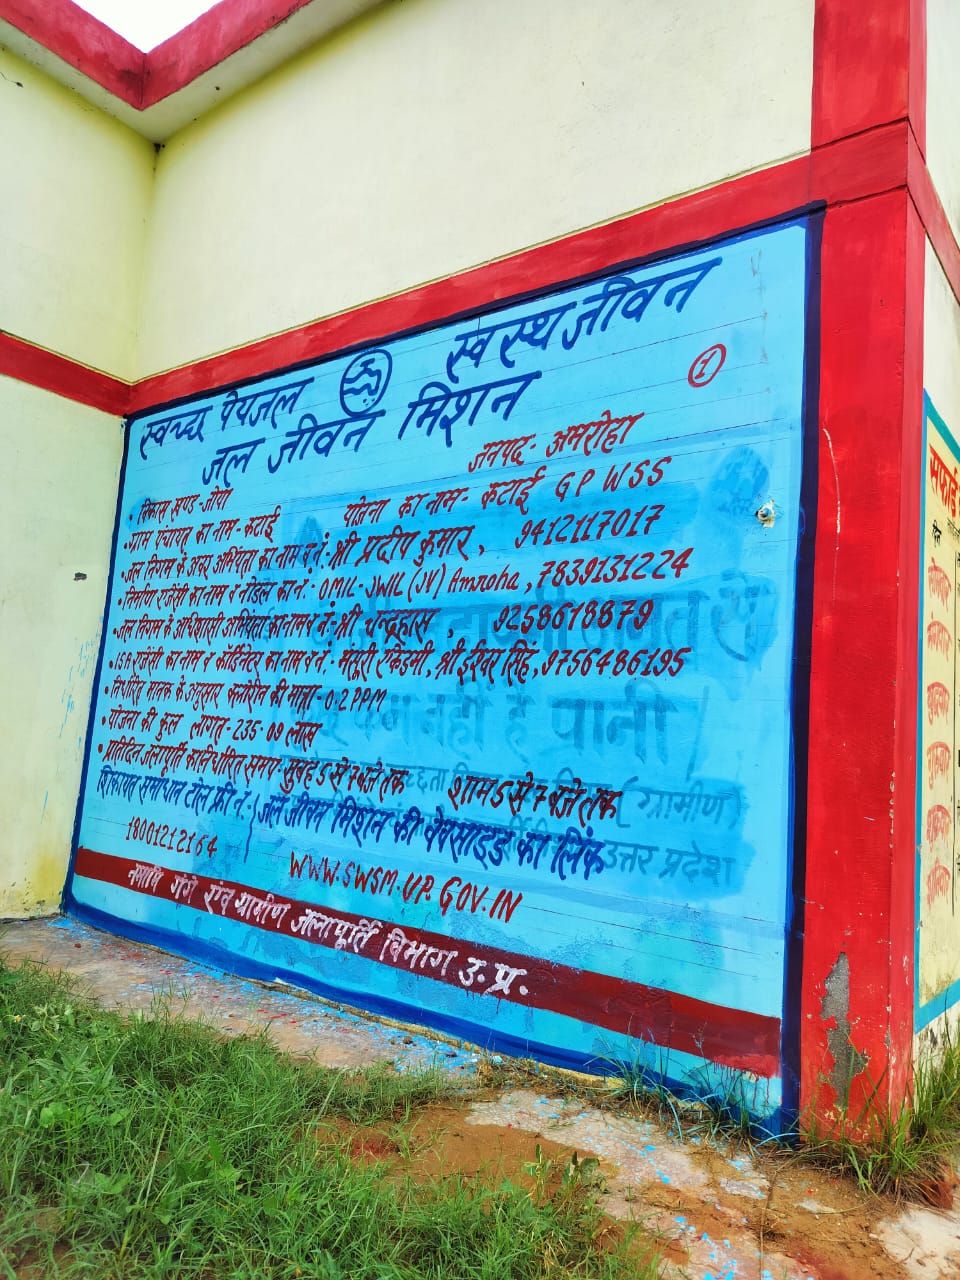 स्वच्छ पेयजल स्वस्थ जीवन
जल जीवन मिशन
1
जनपद- अमरोहा
• विकास खण्ड - जोया
योजना का नाम- कटाई GPWSS
• ग्राम पंचायत का नाम- कटाई
• जल निगम के अवर अभियंता का नाम व नं:- श्री प्रदीप कुमार, 9412117017
• निर्माण एजेंसी का नाम व नोडल का नं:- OMIL-JWIL (JV) Amroha, 7839131224
• जल निगम के अधिशासी अभियंता का नाम व नं:- श्री चन्द्रहास, 9258618879
• ISA एजेंसी का नाम व कॉर्डिनेटर का नाम व नं:- मंसूरी एकेडमी, श्री ईश्वर सिंह, 9756486195
• निर्धारित मानक के अनुसार क्लोरीन की मात्रा- 0.2 PPM
• योजना की कुल लागत- 235.09 लाख
• प्रतिदिन जलापूर्ति का निर्धारित समय- सुबह 5 से 7 बजे तक शाम 5 से 7 बजे तक
शिकायत समाधान टोल फ्री नं:- जल जीवन मिशन की वेबसाइड का लिंक
18001212164
WWW.SWSM.UP.GOV.IN
नमामि गंगे एंव ग्रामीण जलापूर्ति विभाग उ.प्र.
नहीं है पानी
(ग्रामीण)
उत्तर प्रदेश
सफाई
दिन
सोमवार
मंगलवार
बुधवार
गुरुवार
शुक्रवार
शनिवार